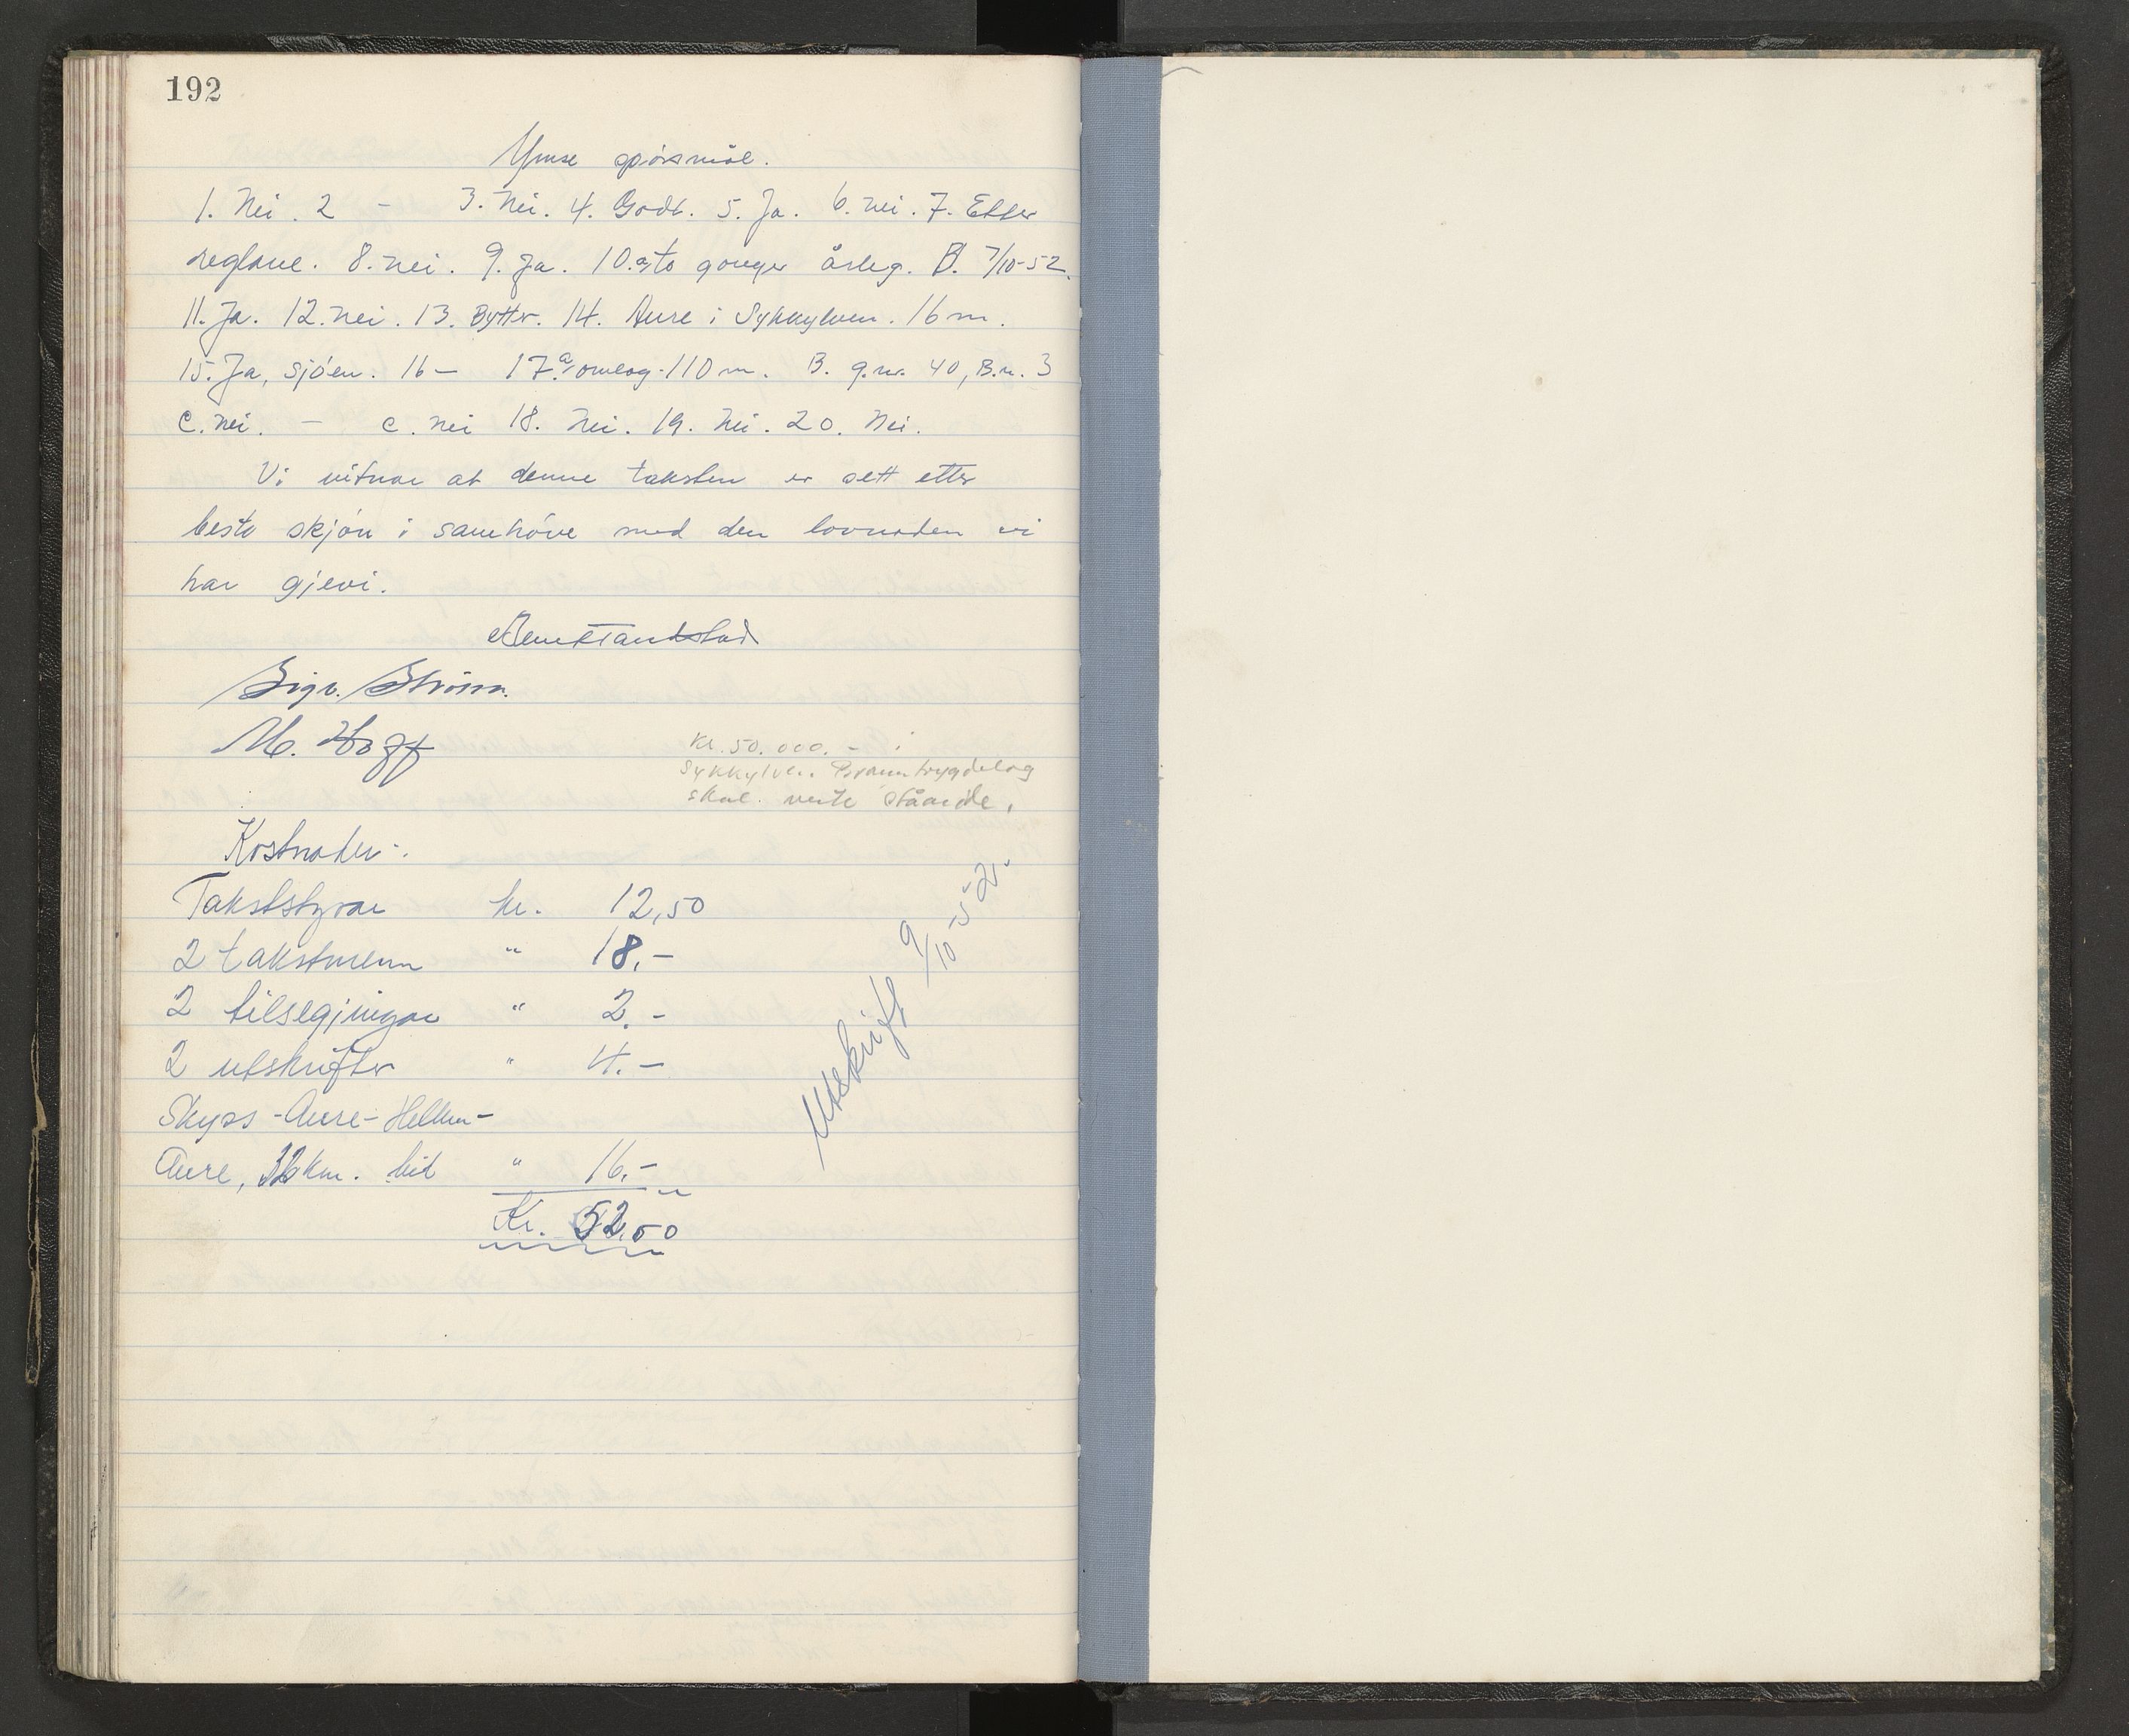 192
Ymse spörsmål.
1. Nei. 2 - 3. Nei. 4. Godt. 5. Ja. 6. nei. 7. Etter
reglane. 8. nei. 9. Ja. 10. a, to gonger årleg. B. 7/10-52.
11. Ja. 12. nei. 13. Bytter. 14. Aure i Sykkylven. 16 m.
15. Ja, sjöen. 16 - 17. a, omlag 110 m. B. g.nr. 40, B.n. 3
c. nei. - e. nei 18. Nei. 19. Nei. 20. Nei.
Vi vitnar at denne taksten er sett etter
beste skjön i samhöve med den lovnaden vi
har gjevi.
Sigv. Ström.
M. Hoff
Kr. 50.000.- i
Sykkylven Branntrygdelag
skal verte ståande.
Kostnader:
Takststyrar kr. 12,50
2 takstmenn " 18.-
2 tilsegjingar " 2.-
2 utskrifter " 4.-
Skyss - Aure - Hellen -
Aure, 32 km. bil " 16.-
Kr. 52,50
Utskrift 9/10-52.